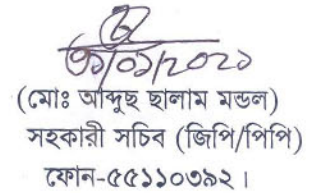 ৩১/০১/২০২১
(মোঃ আব্দুছ ছালাম মন্ডল)
সহকারী সচিব (জিপি/পিপি)
ফোন-৫৫১১০৩৯২।